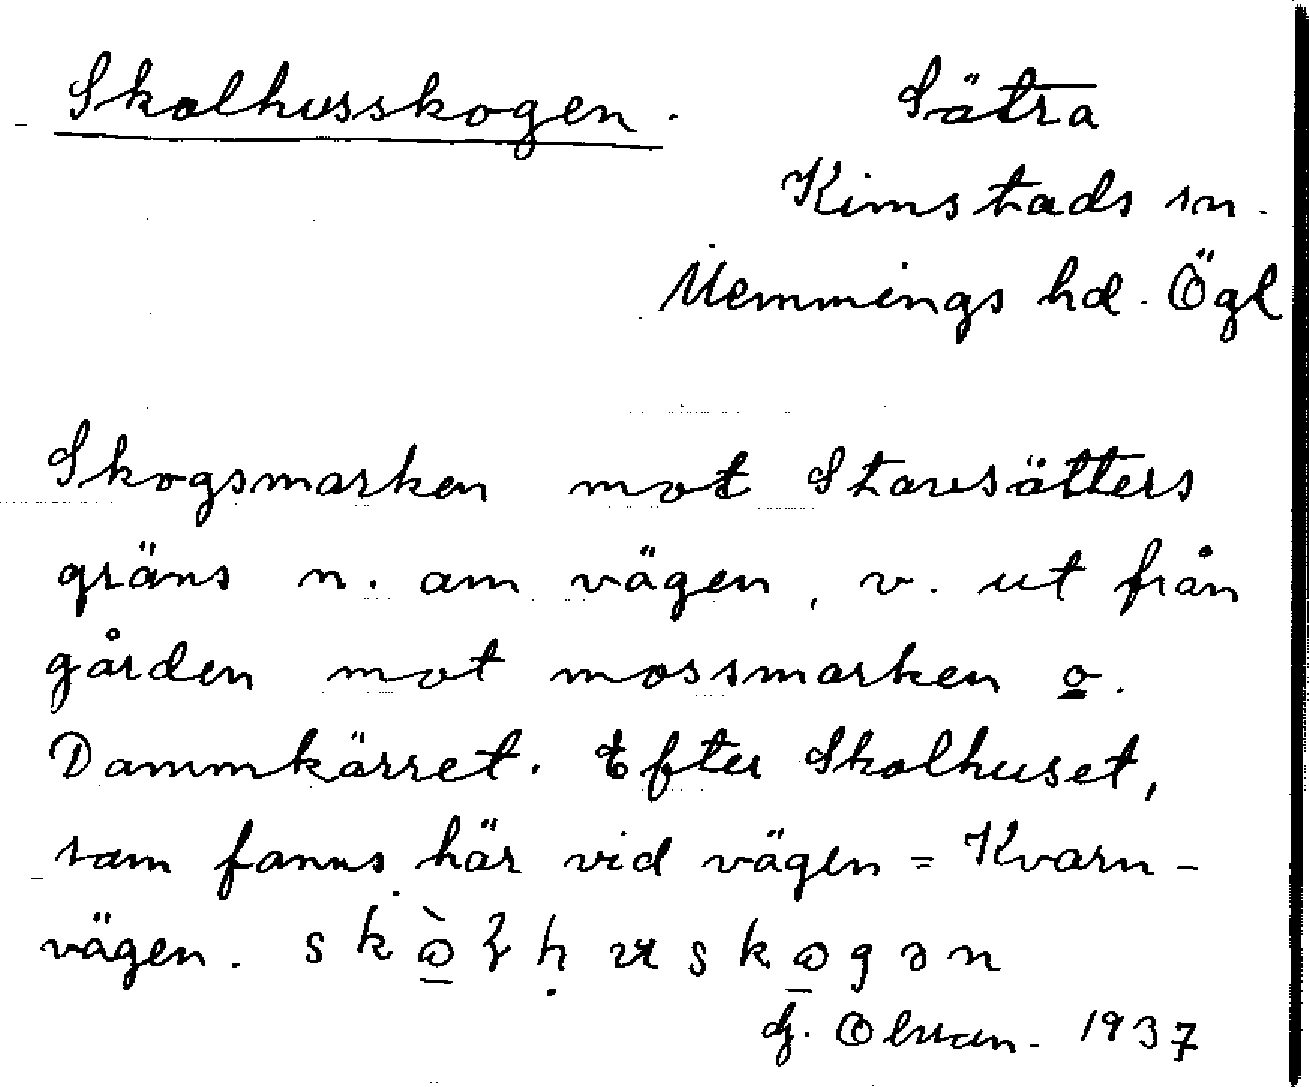 Skolhusskogen. Sätra
Kimstads sn.
Memmings hd. Ögl
Skogsmarken mot Stavsätters
gräns n. om vägen, v. ut från
gården mot mossmarken o.
Dammkärret. Efter Skolhuset,
som fanns här vid vägen = Kvarn-
vägen.
1937